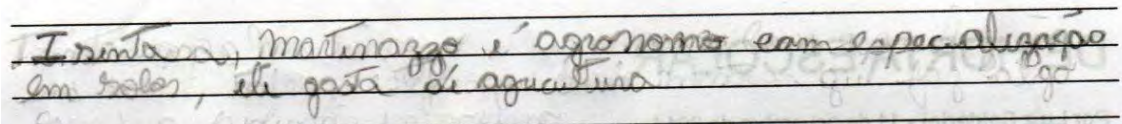 martinazzo é agronomo com especialização
em solos, ele gosta de agricultura